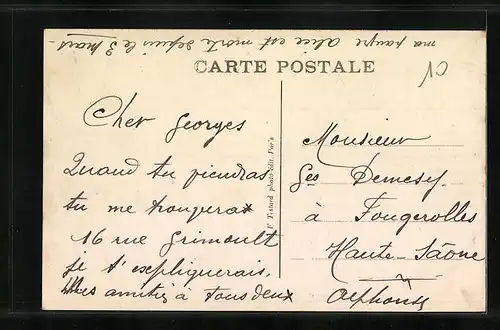 ma pauvre Alice est morte depuis le 3 Mars -
CARTE POSTALE
Cher Georges
Quand tu viendras
tu me trouveras
16 rue Grimoult
je t'expliquerais.
Mes amitiés à tous deux
F. Testard photo-édit.
Monsieur
Ges Demesy
à Fougerolles
Haute-Saône
Alphonse